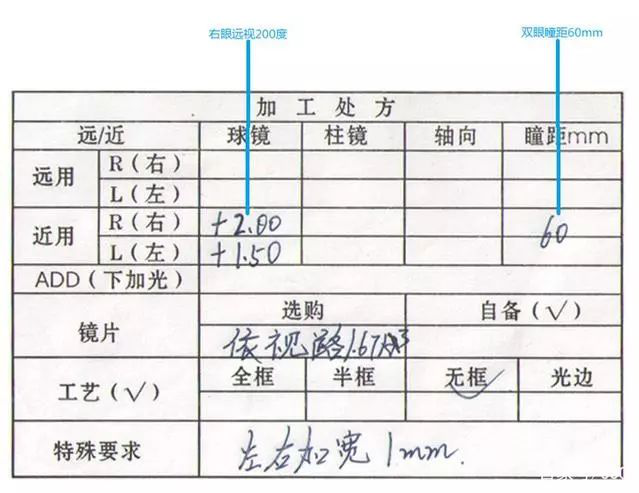 右眼远视200度 双眼瞳距60mm
加工处方
远/近 球镜 柱镜 轴向 瞳距mm
远用 R(右)
L(左)
近用 R(右) +2.00 60
L(左) +1.50
ADD(下加光)
镜片 选购 自备(√)
依视路1.67
工艺(√) 全框 半框 无框 光边
特殊要求 左右加宽1mm.